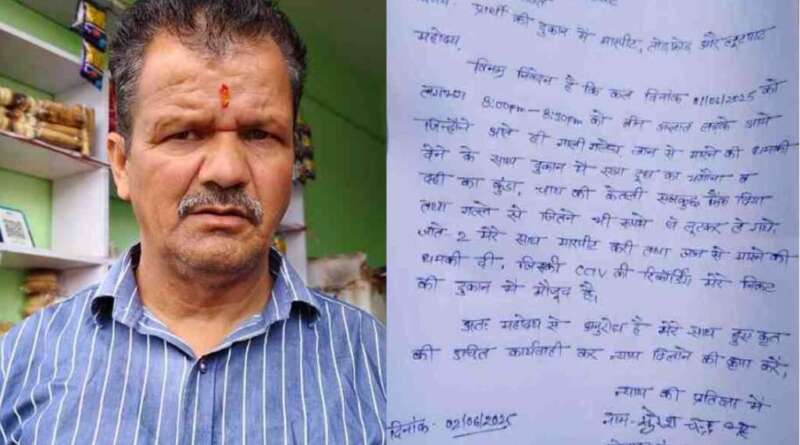 विषय- प्रार्थी की दुकान में मारपीट, तोडफोड और लूटपाट
महोदय,
विनम्र निवेदन है कि कल दिनांक 01/06/2025 को
लगभग 8:00pm-8:30pm को तीन अज्ञात लडके आये
जिन्होंने आते ही गाली गलौच, जान से मारने की धमकी
देने के साथ दुकान में रखा दूध का भगौना व
दही का कुंडा, चाय की केतली सबकुछ फेंक दिया
तथा गल्ले से जितने भी रूपये थे लूटकर ले गये,
जाते 2 मेरे साथ मारपीट करी तथा जान से मारने की
धमकी दी, जिसकी CCTV की रिकॉर्डिंग मेरे निकट
की दुकान में मौजूद है।
अतः महोदय से अनुरोध है मेरे साथ हुए कृत
की उचित कार्यवाही कर न्याय दिलाने की कृपा करें,
न्याय की प्रतिक्षा में
दिनांक- 02/06/2025
नाम- सुरेश चन्द्र